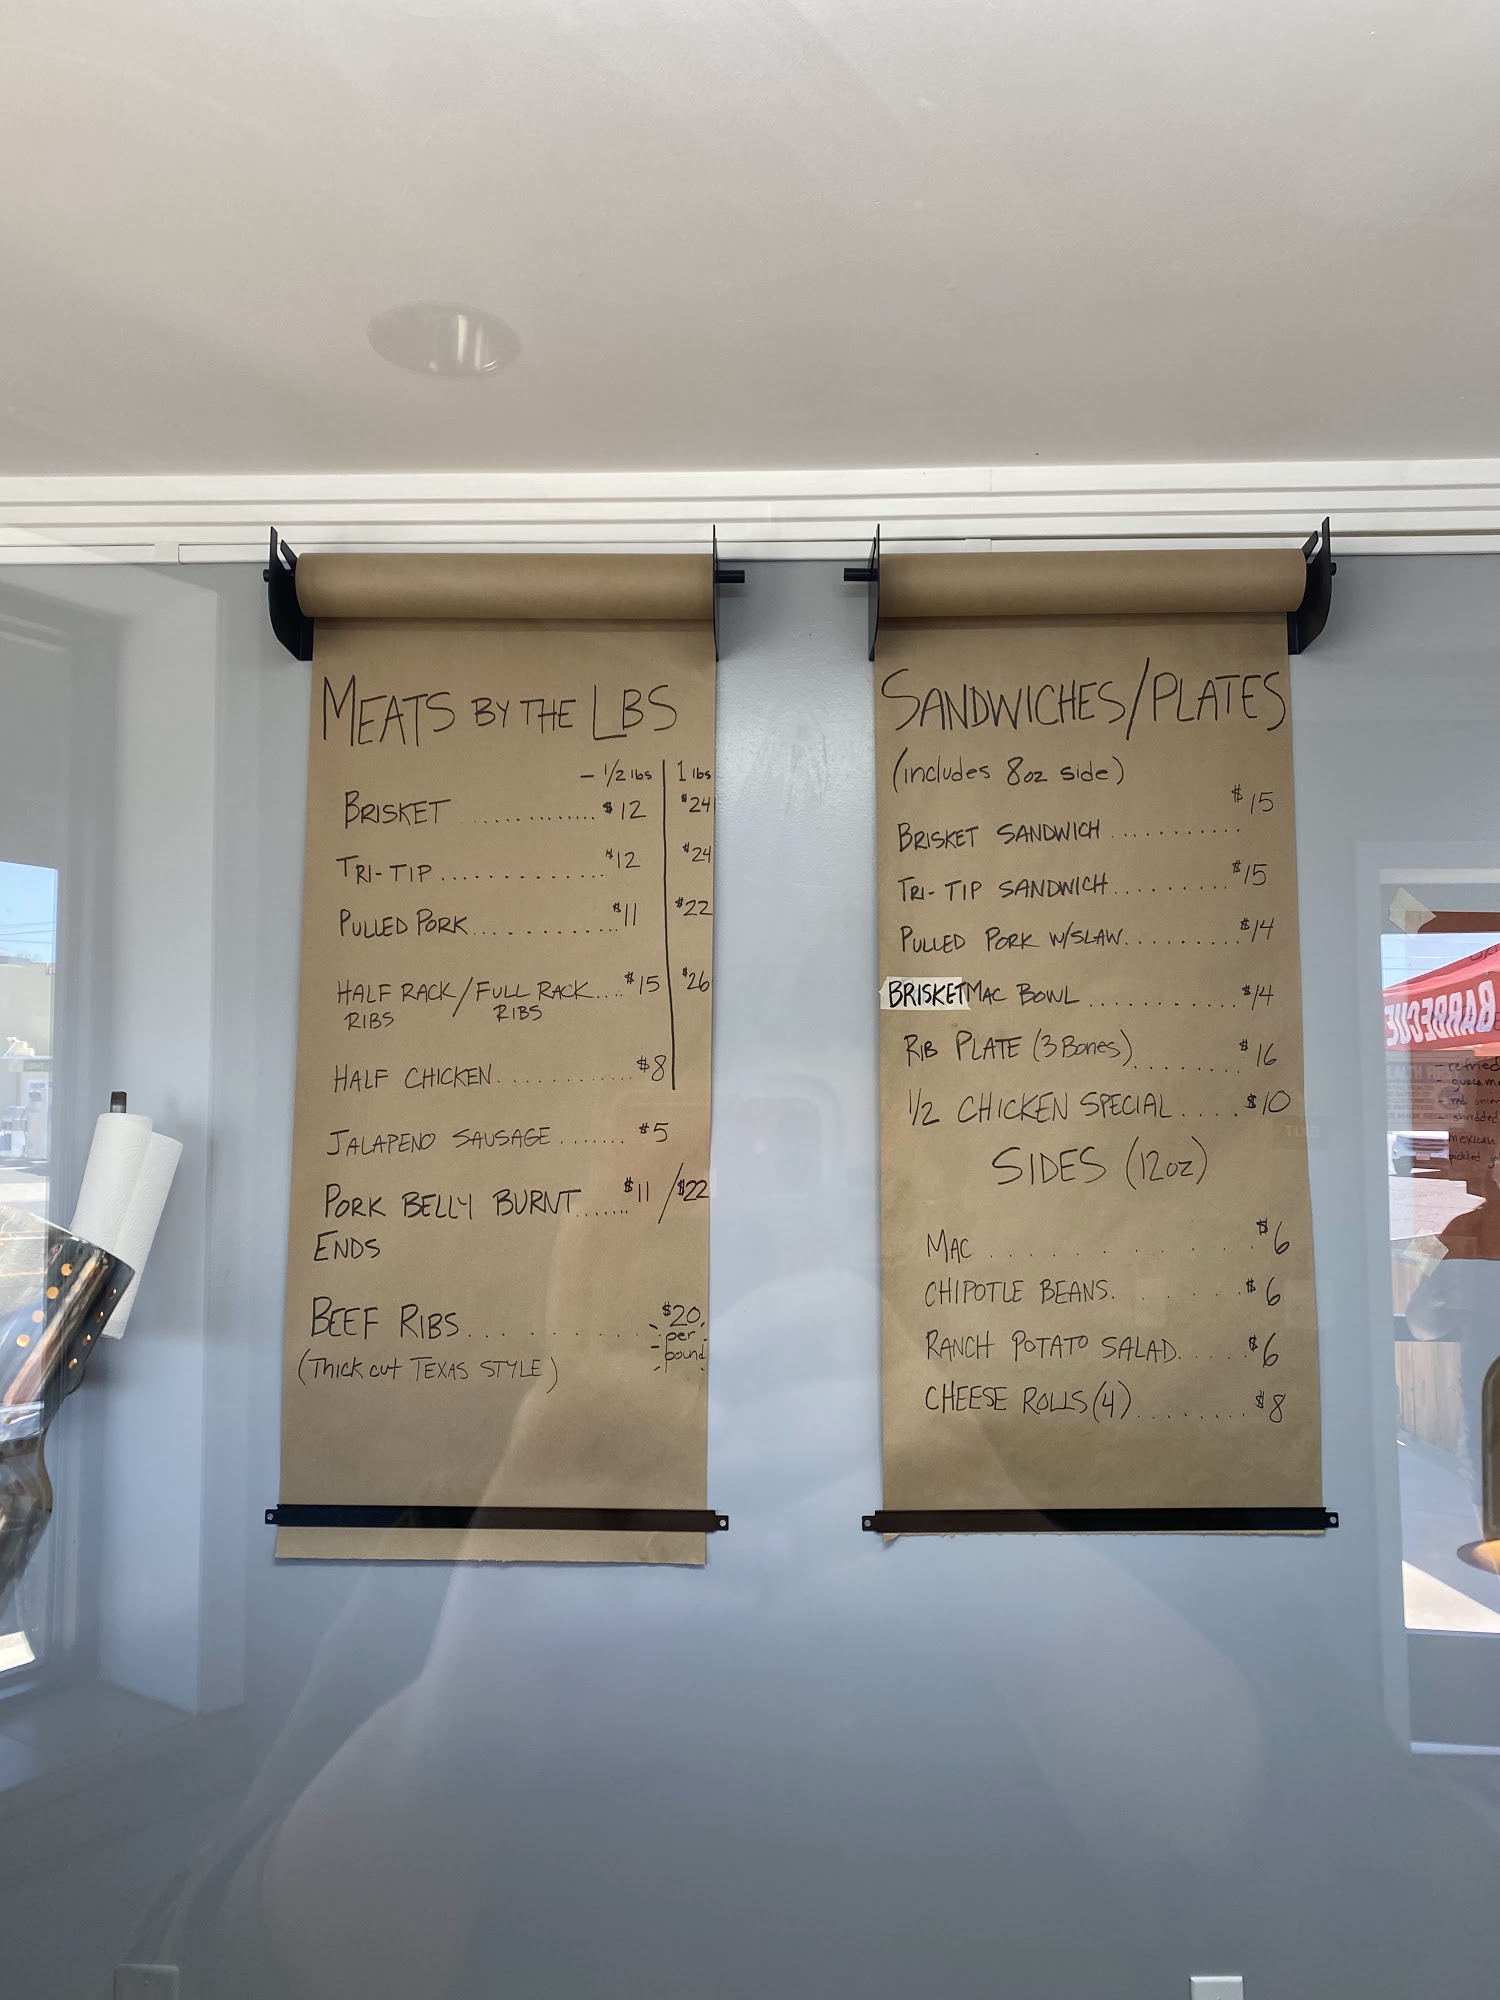 MEATS BY THE LBS
- 1/2 lbs | 1 lbs
BRISKET .............. $12 $24
TRI-TIP .............. $12 $24
PULLED PORK............ $11 $22
HALF RACK/FULL RACK.... $15 $26
RIBS RIBS
HALF CHICKEN............ $8
JALAPENO SAUSAGE ....... $5
PORK BELLY BURNT....... $11 / $22
ENDS
BEEF RIBS............ $20
per
pound
(Thick cut TEXAS STYLE)
SANDWICHES/PLATES
(includes 8oz side)
BRISKET SANDWICH ........... $15
TRI-TIP SANDWICH.......... $15
PULLED PORK W/SLAW.......... $14
BRISKET MAC BOWL ............ $14
RIB PLATE (3 Bones)......... $16
1/2 CHICKEN SPECIAL.... $10
SIDES (12oz)
MAC ............ $6
CHIPOTLE BEANS....... $6
RANCH POTATO SALAD..... $6
CHEESE ROLLS (4)........ $8
BARBECUE
- refried
- guacamo
- red onion
- shredded
mexican
pickled